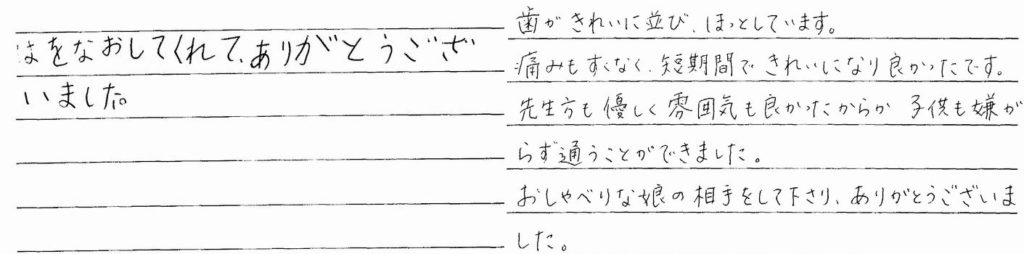 はをなおしてくれて、ありがとうござ
いました。
歯がきれいに並び、ほっとしています。
痛みもすくなく、短期間できれいになり良かったです。
先生方も優しく雰囲気も良かったからか 子供も嫌が
らず通うことができました。
おしゃべりな娘の相手をして下さり、ありがとうございま
した。